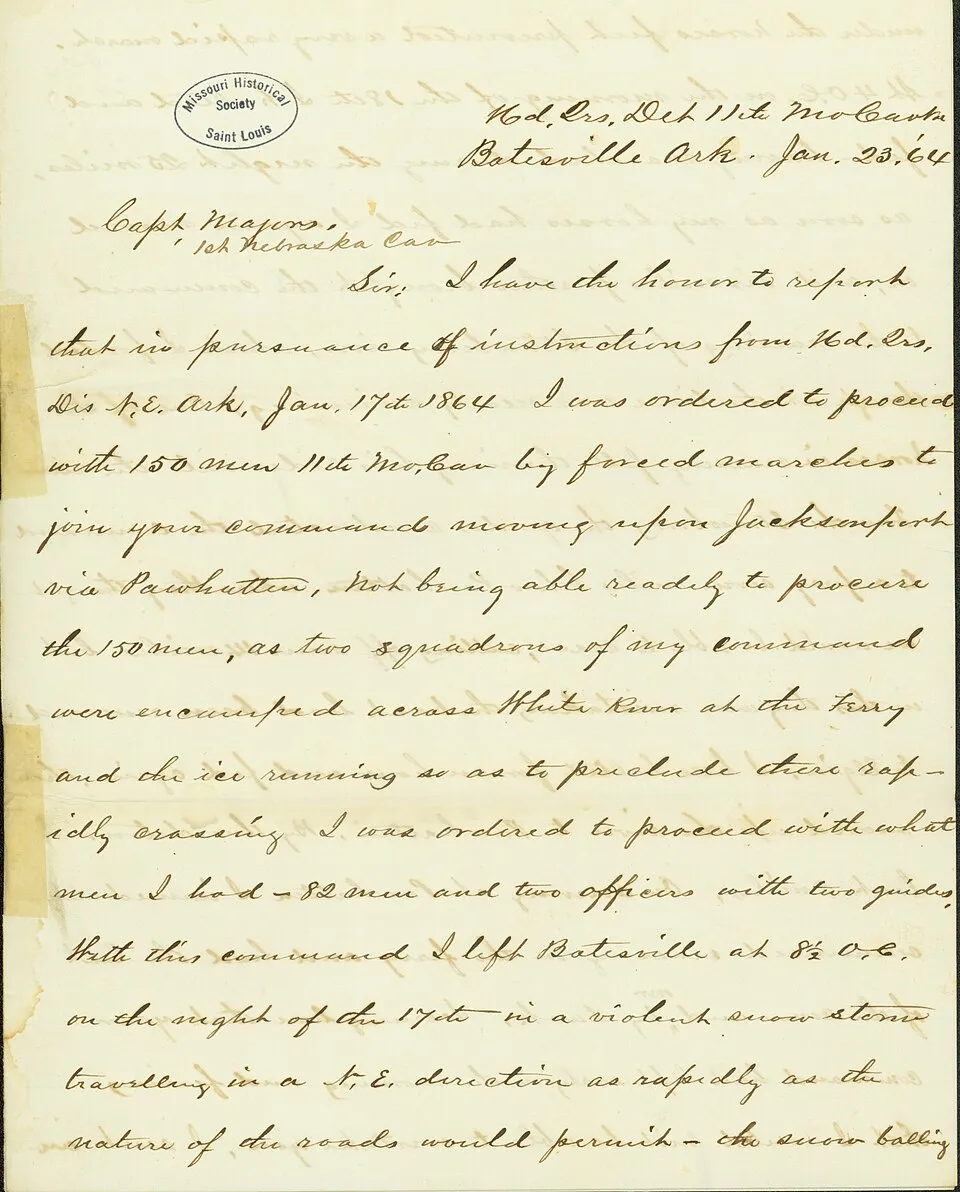 Missouri Historical
Society
Saint Louis
Hd, Qrs, Det 11th Mo Cav
Batesville Ark. Jan. 23, '64
Capt Majors,
1st Nebraska Cav
Sir; I have the honor to report
that in pursuance of instructions from Hd. Qrs,
Dis N.E. Ark, Jan, 17th 1864 I was ordered to proceed
with 150 men 11th Mo, Cav by forced marches to
join your command moving upon Jacksonport
via Pawhatten, Not being able readily to procure
the 150 men, as two squadrons of my command
were encamped across White River at the Ferry
and the ice running so as to preclude there rap-
idly crossing I was ordered to proceed with what
men I had – 82 men and two officers with two guides,
With this command I left Batesville at 8½ O, C,
on the night of the 17th in a violent snow storm
travelling in a N. E. direction as rapidly as the
nature of the roads would permit – the snow balling